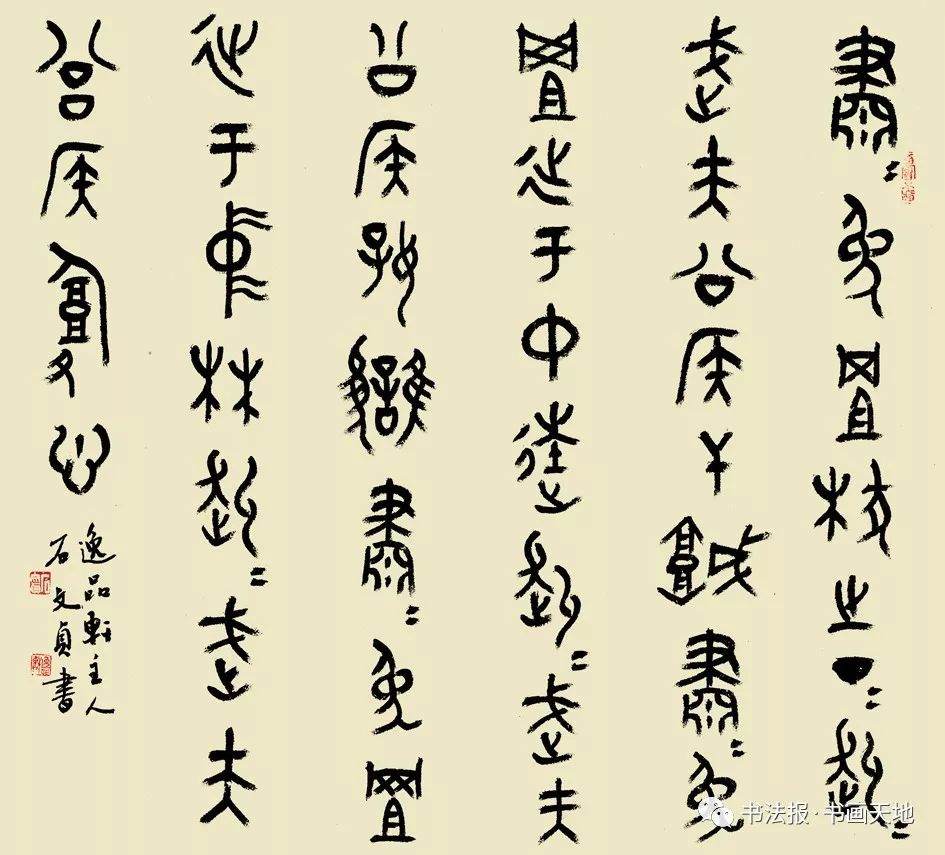 肅〻兔罝椓之丁〻赳〻
武夫公侯干城肅〻兔
罝施于中逵赳〻武夫
公侯好讎肅〻兔罝
施于中林赳〻武夫
公侯腹心
逸品軒主人
石文貞書
书法报·书画天地